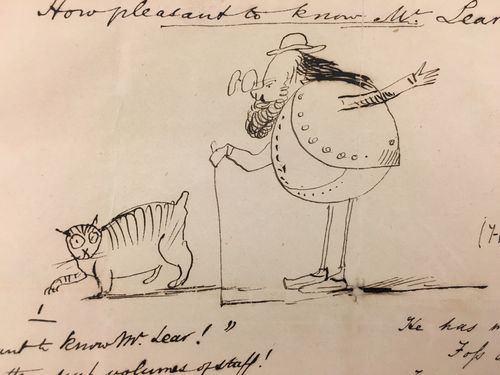 How pleasant to know Mr. Lear
(
1
to know Mr. Lear!"
volumes of stuff!
He has
Foss